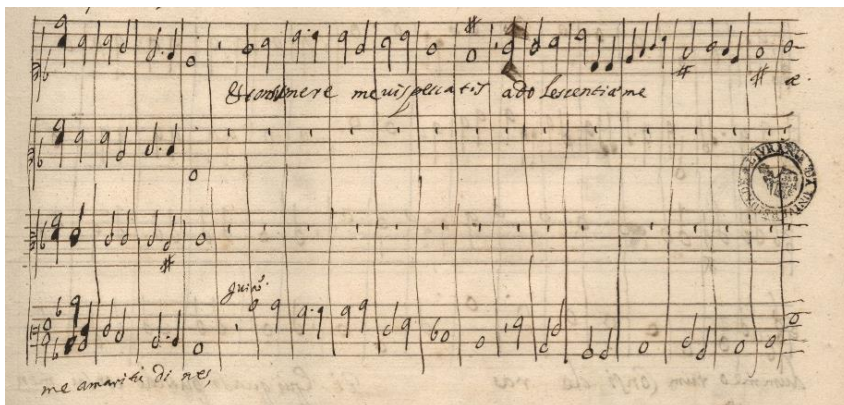 & consumere me vis peccatis adolescentiæ meæ.
guión.
me amaritudines,